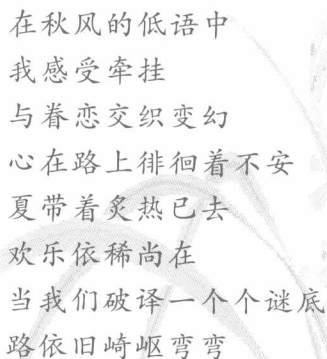 在秋风的低语中
我感受牵挂
与眷恋交织变幻
心在路上徘徊着不安
夏带着炙热已去
欢乐依稀尚在
当我们破译一个个谜底
路依旧崎岖弯弯